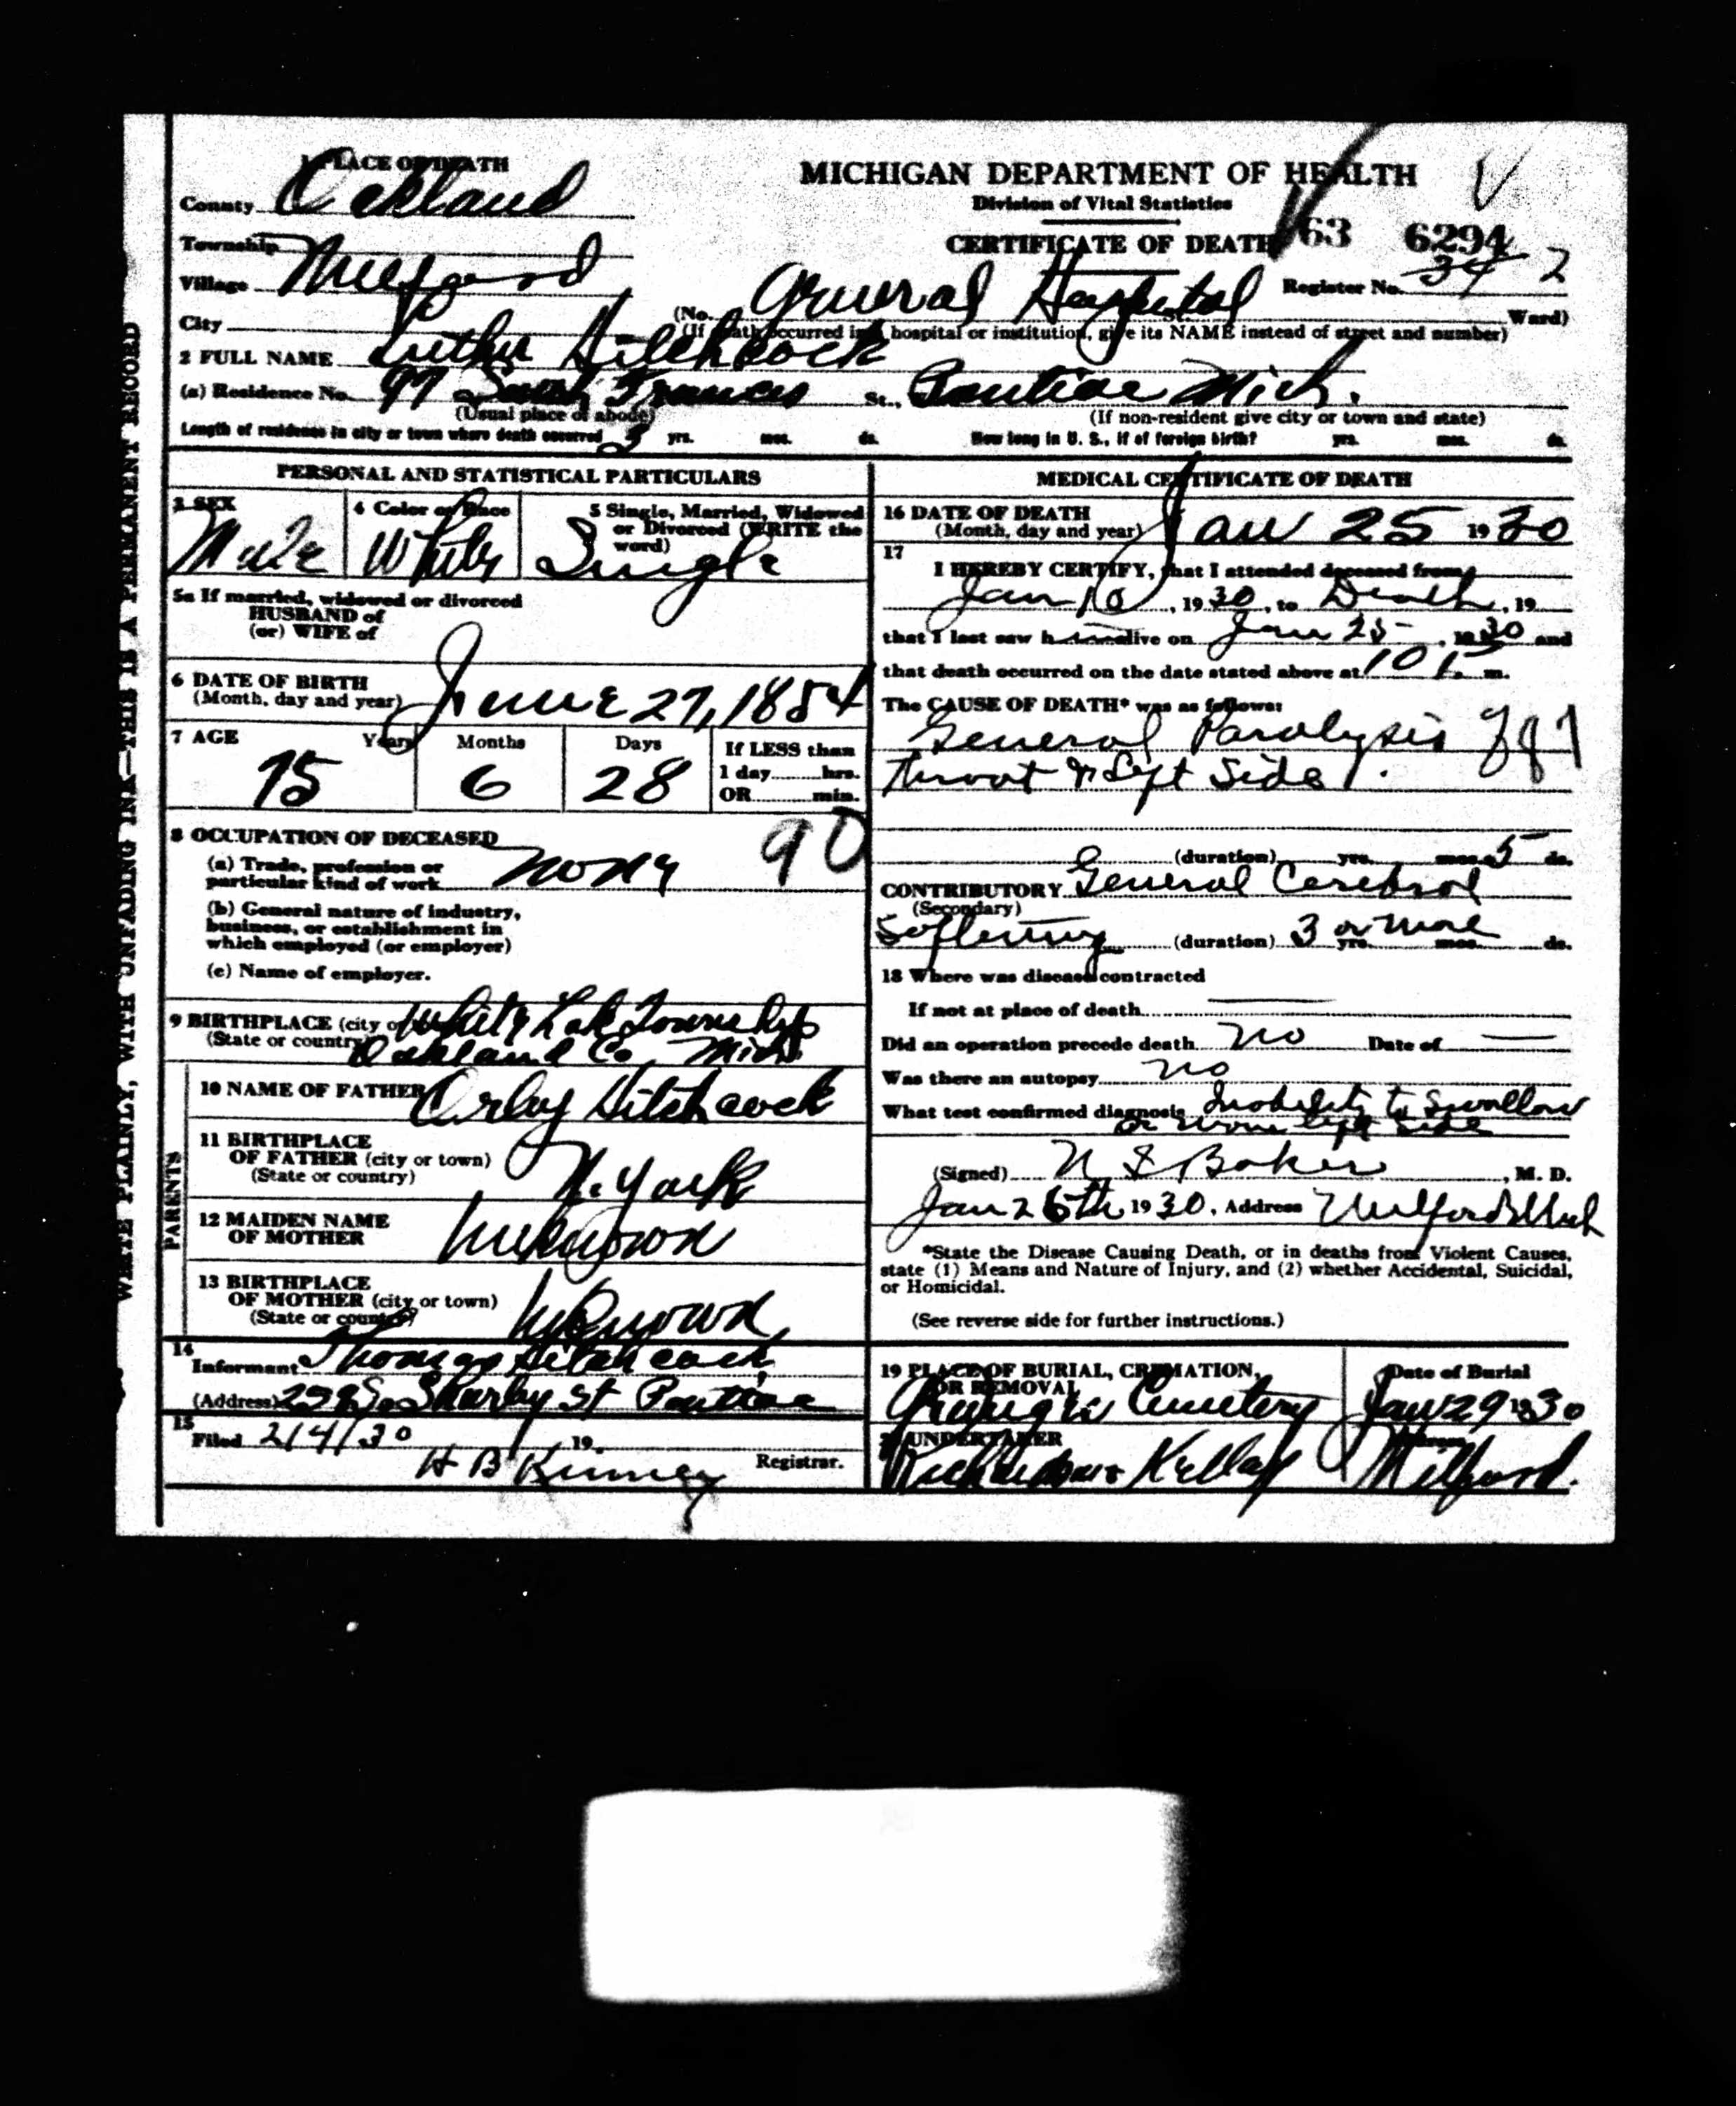 1 PLACE OF DEATH
MICHIGAN DEPARTMENT OF HEALTH
County Oakland
Division of Vital Statistics
CERTIFICATE OF DEATH 63 6294
Township
Village Milford
General Hospital
Register No. 34 2
City
(No. St. Ward)
(If death occurred in a hospital or institution, give its NAME instead of street and number)
2 FULL NAME Luther Hitchcock
(a) Residence No. 97 Francis St., Pontiac Mich.
(Usual place of abode)
(If non-resident give city or town and state)
Length of residence in city or town where death occurred 3 yrs. mos. ds.
How long in U. S., if of foreign birth? yrs. mos. ds.
WRITE PLAINLY, WITH UNFADING INK—THIS IS A PERMANENT RECORD
PERSONAL AND STATISTICAL PARTICULARS
3 SEX
Male
4 Color or Race
White
5 Single, Married, Widowed
or Divorced (WRITE the
word)
Single
5a If married, widowed or divorced
HUSBAND of
(or) WIFE of
6 DATE OF BIRTH
(Month, day and year) June 27, 1854
7 AGE
Years
75
Months
6
Days
28
If LESS than
1 day hrs.
OR min.
8 OCCUPATION OF DECEASED
90
(a) Trade, profession or
particular kind of work none
(b) General nature of industry,
business, or establishment in
which employed (or employer)
(c) Name of employer.
9 BIRTHPLACE (city or White Lake Township
(State or country) Oakland Co. Mich
PARENTS
10 NAME OF FATHER Orley Hitchcock
11 BIRTHPLACE
OF FATHER (city or town)
(State or country) N. York
12 MAIDEN NAME
OF MOTHER Unknown
13 BIRTHPLACE
OF MOTHER (city or town)
(State or country) Unknown
14
Informant Thomas Hitchcock
(Address) St Pontiac
15
Filed 2/4/30 19
H B Kinney Registrar.
MEDICAL CERTIFICATE OF DEATH
16 DATE OF DEATH
(Month, day and year) Jan 25 1930
17
I HEREBY CERTIFY, that I attended deceased from
Jan 10, 1930, to Death, 19
that I last saw him alive on Jan 25, 1930 and
that death occurred on the date stated above at 10 P. m.
The CAUSE OF DEATH* was as follows:
General Paralysis
Throat & Left Side
(duration) yrs. mos. 5 ds.
CONTRIBUTORY General Cerebral
(Secondary)
Softening (duration) 3 or more yrs. mos. ds.
18 Where was disease contracted
If not at place of death
Did an operation precede death no Date of
Was there an autopsy no
What test confirmed diagnosis Inability to Swallow
or move left side
(Signed) N S Baker, M. D.
Jan 26th 1930, Address Milford Mich
*State the Disease Causing Death, or in deaths from Violent Causes,
state (1) Means and Nature of Injury, and (2) whether Accidental, Suicidal,
or Homicidal.
(See reverse side for further instructions.)
19 PLACE OF BURIAL, CREMATION,
OR REMOVAL
Cemetery
Date of Burial
Jan 29 1930
20 UNDERTAKER
Kelley
Milford.